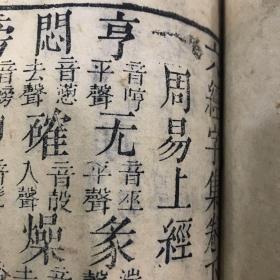 六經字集卷
周易上經
亨音哼平聲无音巫平聲彖
悶去聲確音殻入聲燥